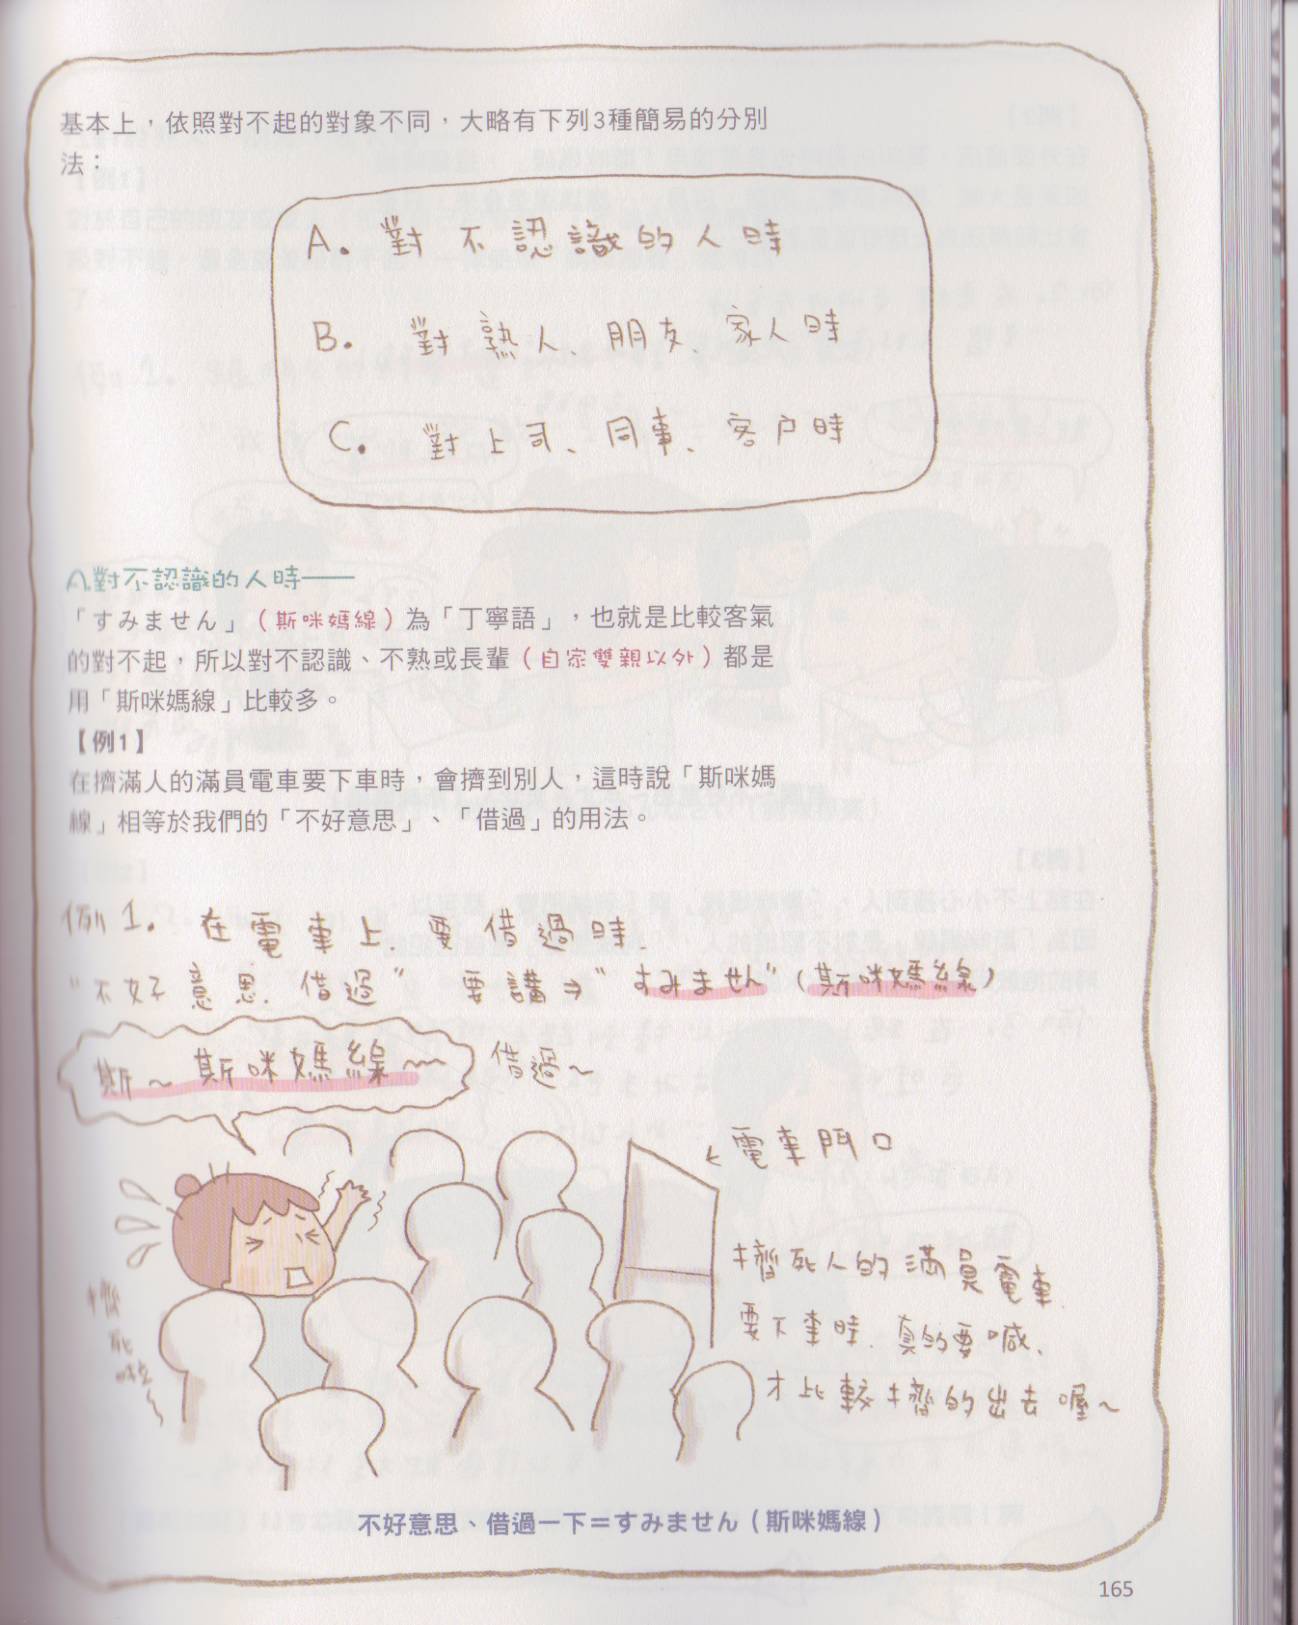 基本上，依照對不起的對象不同，大略有下列3種簡易的分別
法：
A. 對不認識的人時
B. 對熟人、朋友、家人時
C. 對上司、同事、客戶時
A.對不認識的人時——
「すみません」（斯咪媽線）為「丁寧語」，也就是比較客氣
的對不起，所以對不認識、不熟或長輩（自家雙親以外）都是
用「斯咪媽線」比較多。
【例1】
在擠滿人的滿員電車要下車時，會擠到別人，這時說「斯咪媽
線」相等於我們的「不好意思」、「借過」的用法。
例1. 在電車上、要借過時、
"不好意思、借過" 要講⇒"すみません"(斯咪媽線)
斯～斯咪媽線～～ 借過～
←電車門口
擠死人的滿員電車
要下車時、真的要喊、
才比較擠的出去喔～
擠死啦～
不好意思、借過一下＝すみません（斯咪媽線）
165